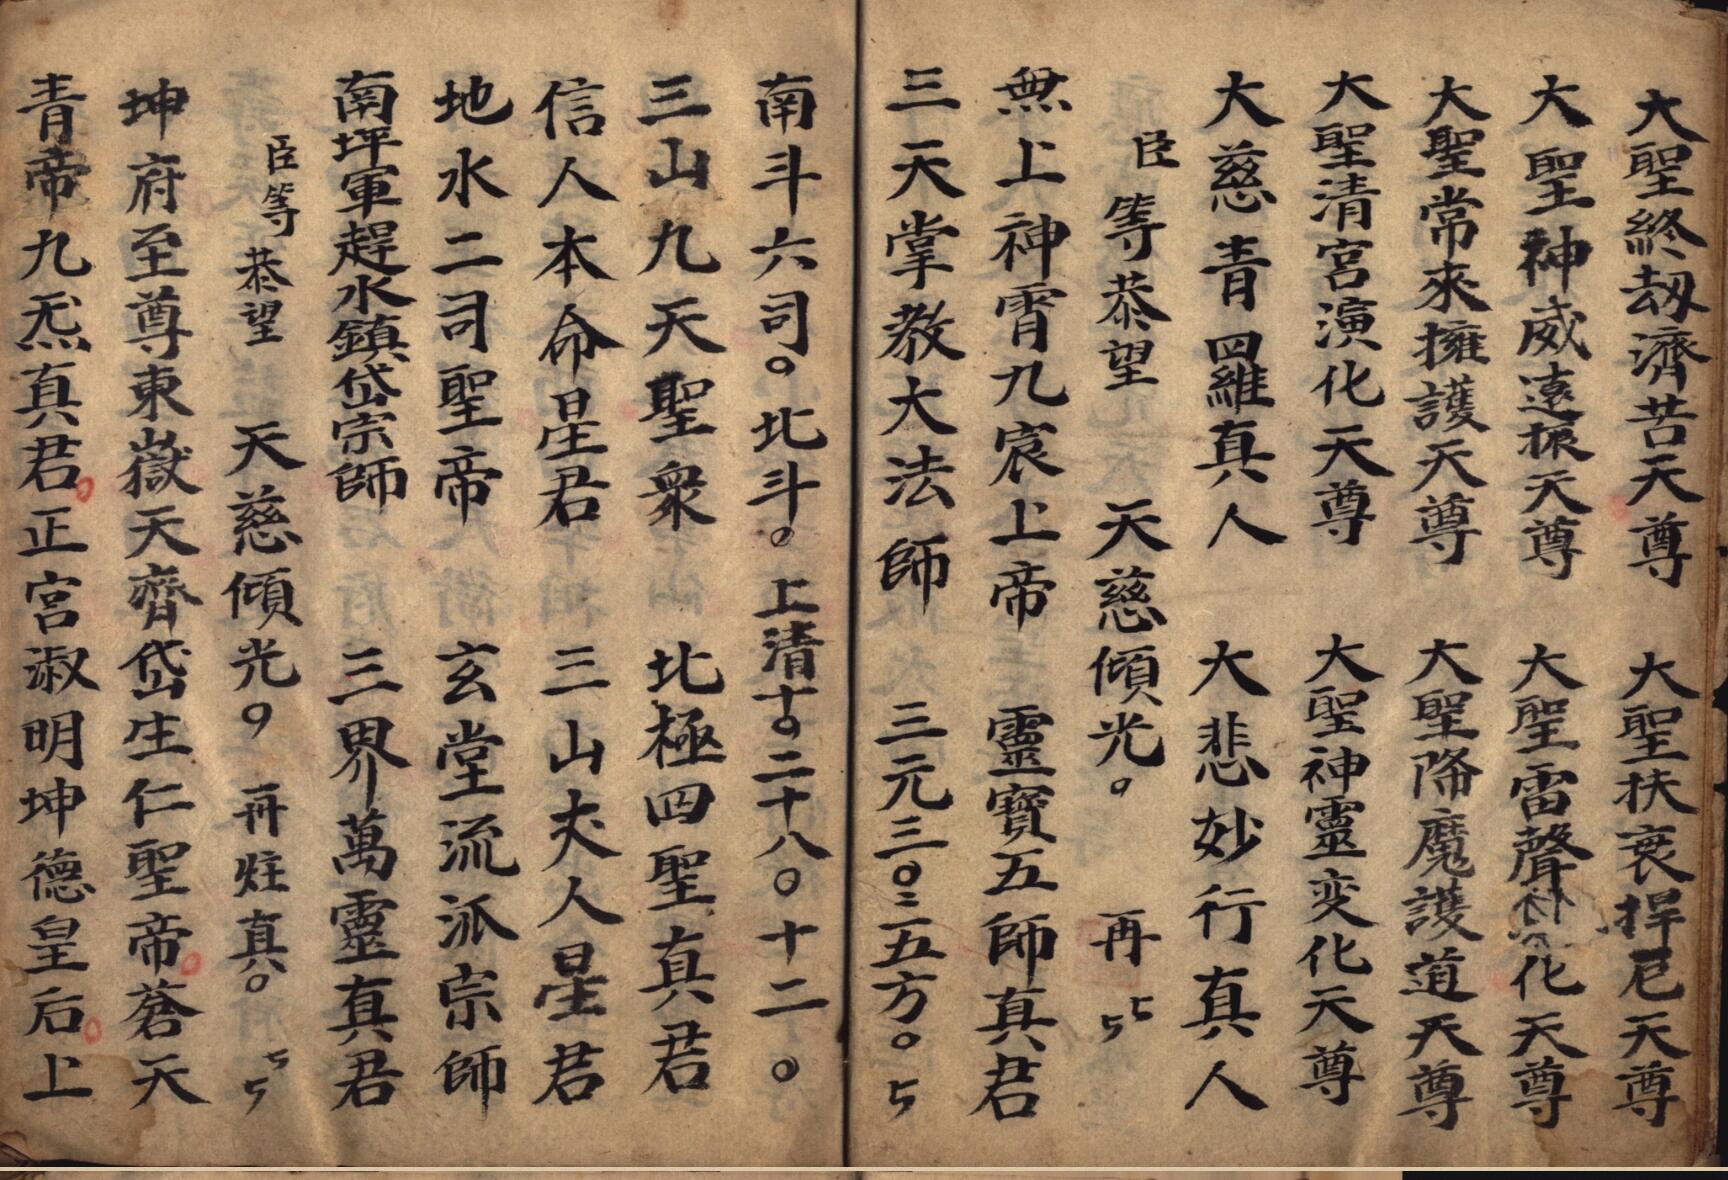 大聖終劫濟苦天尊　大聖扶衰捍厄天尊
大聖神威遠振天尊　大聖雷聲神化天尊
大聖常來擁護天尊　大聖降魔護道天尊
大聖清宮演化天尊　大聖神靈変化天尊
大慈青羅真人　大悲妙行真人
臣等恭望　天慈傾光。　再
無上神霄九宸上帝　靈寶五師真君
三天掌教大法師　三元三〇三五方。
南斗六司。北斗。上清十〇二十八〇十二。
三山九天聖衆　北極四聖真君
信人本命星君　三山夫人星君
地水二司聖帝　玄堂流派宗師
南坪軍趕水鎮岱宗師　三界萬靈真君
臣等恭望　天慈傾光。　再炷真。
坤府至尊東嶽天齊岱生仁聖帝。蒼天
青帝九炁真君。正宮淑明坤德皇后。上